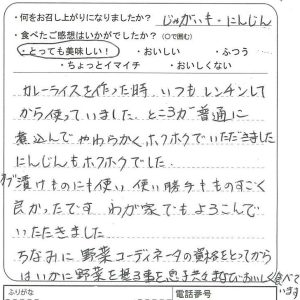 ・何をお召し上がりになりましたか？ じゃがいも・にんじん
・食べたご感想はいかがでしたか？（○で囲む）
・とっても美味しい！ ・おいしい ・ふつう
・ちょっとイマイチ ・おいしくない
カレーライスを作った時、いつもレンチンして
から使っていました。ところが普通に
煮込んでやわらかくホクホクでいただきました
にんじんもホクホクでした。
漬けものにも使い 使い勝手もものすごく
良かったです わが家でもよろこんで
いただきました
ちなみに野菜コーディネータの資格をとってから
はいかに野菜を 事を息子共々まなびおいしく食べて
います
ふりがな
電話番号